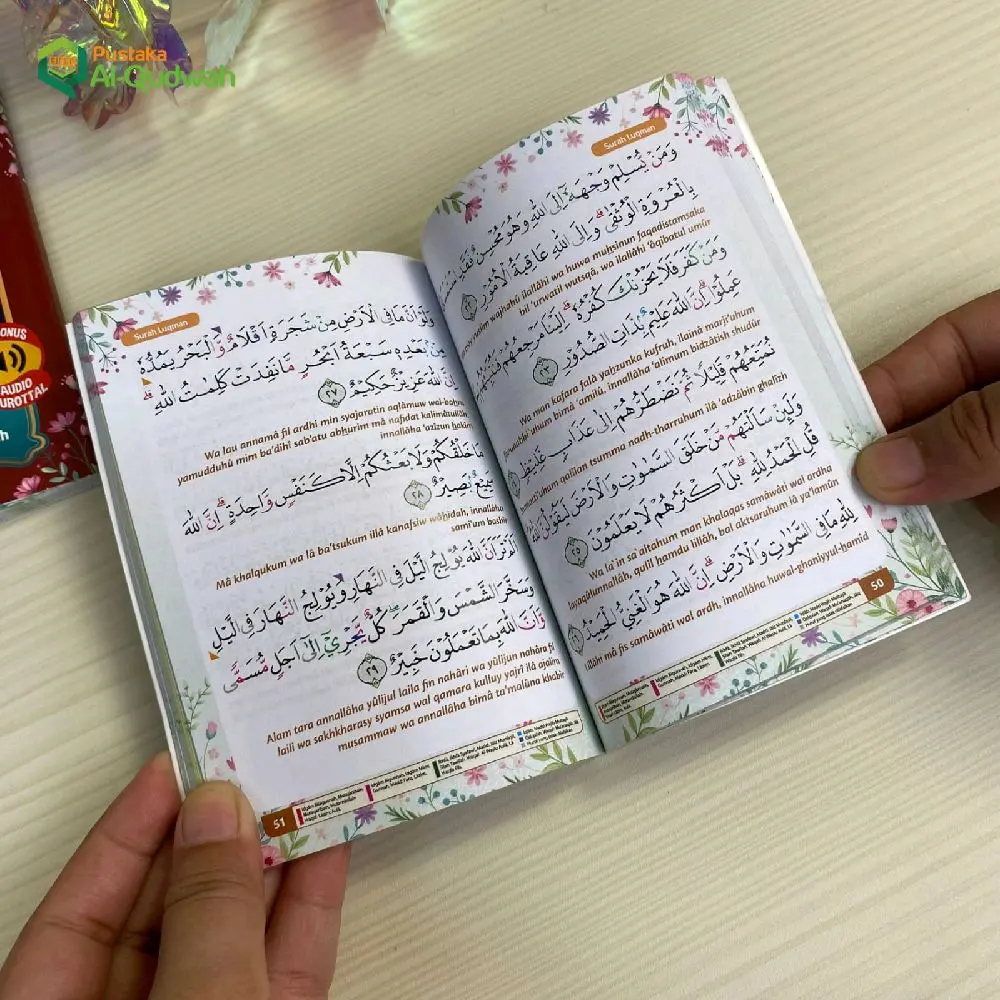 Pustaka
Al-Qudwah
BONUS
AUDIO
MUROTTAL
Surah Luqman
وَمَنْ يُّسْلِمْ وَجْهَهٗٓ اِلَى اللّٰهِ وَهُوَ مُحْسِنٌ فَقَدِ
بِالْعُرْوَةِ الْوُثْقٰىۗ وَاِلَى اللّٰهِ عَاقِبَةُ الْاُمُوْرِ ٢٢
wajhahû ilallâhi wa huwa muhsinun faqadistamsaka
bil 'urwatil wutsqâ, wa ilallâhi 'âqibatul umûr
وَمَنْ كَفَرَ فَلَا يَحْزُنْكَ كُفْرُهٗۗ اِلَيْنَا مَرْجِعُهُمْ
عَمِلُوْاۗ اِنَّ اللّٰهَ عَلِيْمٌۢ بِذَاتِ الصُّدُوْرِ ٢٣
Wa man kafara falâ yahzunka kufruh, ilainâ marji'uhum
bimâ 'amilû, innallâha 'alîmum bidzâtish shudûr
نُمَتِّعُهُمْ قَلِيْلًا ثُمَّ نَضْطَرُّهُمْ اِلٰى عَذَابٍ غَلِيْظٍ
qalîlan tsumma nadh-tharruhum ilâ 'adzâbin ghalîzh
وَلَىِٕنْ سَاَلْتَهُمْ مَّنْ خَلَقَ السَّمٰوٰتِ وَالْاَرْضَ لَيَقُوْلُنَّ اللّٰهُ
قُلِ الْحَمْدُ لِلّٰهِۗ بَلْ اَكْثَرُهُمْ لَا يَعْلَمُوْنَ ٢٥
Wa la'in sa'altahum man khalaqas samâwâti wal ardha
layaqûlunnallâh, qulil hamdu lillâh, bal aktsaruhum lâ ya'lamûn
لِلّٰهِ مَا فِى السَّمٰوٰتِ وَالْاَرْضِۗ اِنَّ اللّٰهَ هُوَ الْغَنِيُّ الْحَمِيْدُ
Lillâhi mâ fis samâwâti wal ardh, innallâha huwal-ghaniyyul-hamîd
50
Surah Luqman
وَلَوْ اَنَّ مَا فِى الْاَرْضِ مِنْ شَجَرَةٍ اَقْلَامٌ وَّالْبَحْرُ يَمُدُّهٗ
مِنْۢ بَعْدِهٖ سَبْعَةُ اَبْحُرٍ مَّا نَفِدَتْ كَلِمٰتُ اللّٰهِۗ
اِنَّ اللّٰهَ عَزِيْزٌ حَكِيْمٌ ٢٧
Wa lau annamâ fil ardhi min syajaratin aqlâmuw wal-bahru
yamudduhû mim ba'dihî sab'atu abhurim mâ nafidat kalimâtullâh
innallâha 'azîzun hakîm
مَا خَلْقُكُمْ وَلَا بَعْثُكُمْ اِلَّا كَنَفْسٍ وَّاحِدَةٍۗ اِنَّ اللّٰهَ
سَمِيْعٌۢ بَصِيْرٌ ٢٨
Mâ khalqukum wa lâ ba'tsukum illâ kanafsiw wâhidah, innallâha
samî'um bashîr
اَلَمْ تَرَ اَنَّ اللّٰهَ يُوْلِجُ الَّيْلَ فِى النَّهَارِ وَيُوْلِجُ النَّهَارَ فِى الَّيْلِ
وَسَخَّرَ الشَّمْسَ وَالْقَمَرَۖ كُلٌّ يَّجْرِيْٓ اِلٰٓى اَجَلٍ مُّسَمًّى
وَّاَنَّ اللّٰهَ بِمَا تَعْمَلُوْنَ خَبِيْرٌ ٢٩
Alam tara annallâha yûlijul laila fin nahâri wa yûlijun nahâra fil
laili wa sakhkharasy syamsa wal qamara kulluy yajrî ilâ ajalim
musammaw wa annallâha bimâ ta'malûna khabîr
51